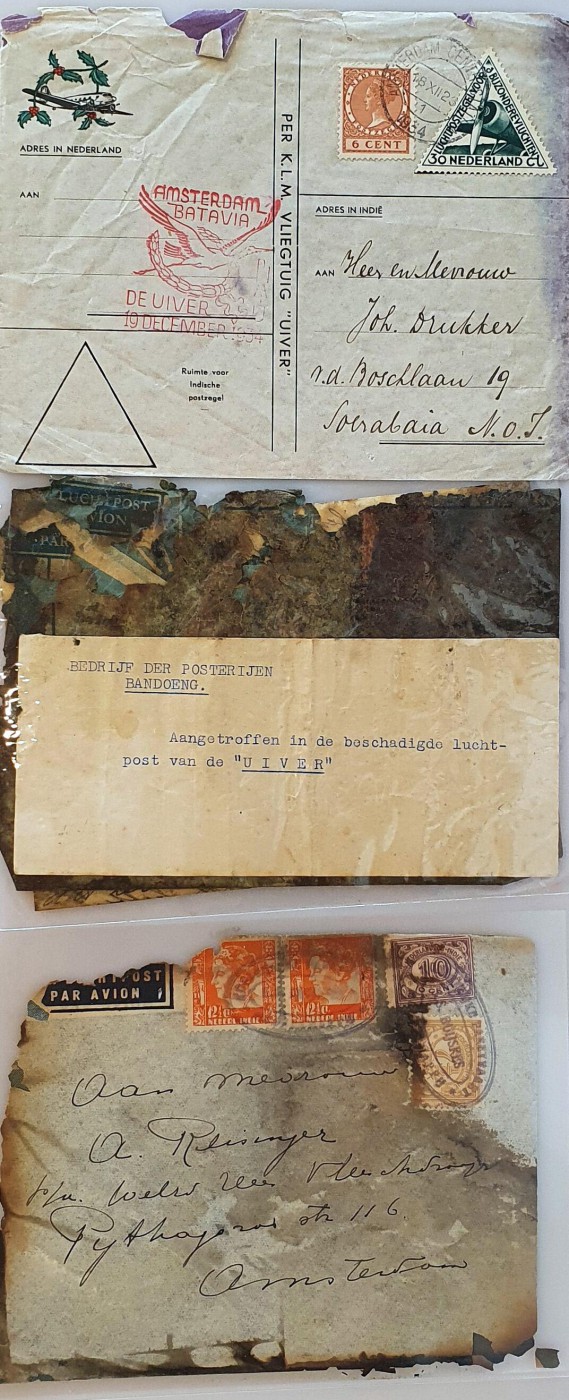 ADRES IN NEDERLAND
AAN
AMSTERDAM
BATAVIA
DE UIVER
19 DECEMBER 1934
Ruimte voor
Indische
postzegel
PER K.L.M. VLIEGTUIG "UIVER"
AMSTERDAM CEN
18 XII 2
1934
6 CENT
LUCHTPOSTZEGEL VOOR BIJZONDERE VLUCHTEN
30 NEDERLAND CT
ADRES IN INDIË
AAN Heer en Mevrouw
Joh. Drukker
v.d. Boschlaan 19
Soerabaia N.O.I.
LUCHTPOST
AVION
PAR
BEDRIJF DER POSTERIJEN
BANDOENG.
Aangetroffen in de beschadigde lucht-
post van de "U I V E R"
POST
PAR AVION
12½ CT
NEDERL INDIE
12½ CT
NEDERL INDIE
10
Aan Mevrouw
A. Reisinger
Pythagoras str 116.
Amsterdam